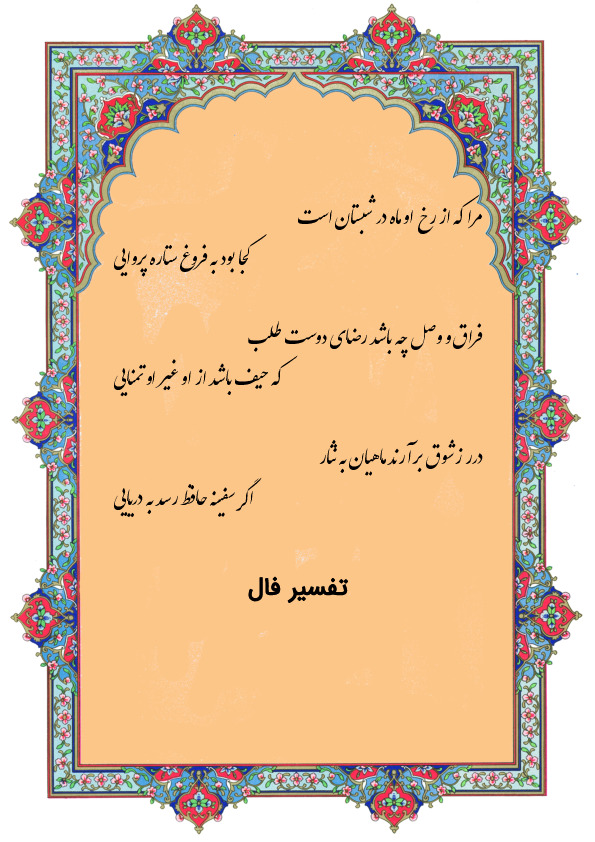 مرا که از رخ او ماه در شبستان است
کجا بود به فروغ ستاره پروایی
فراق و وصل چه باشد رضای دوست طلب
که حیف باشد از او غیر او تمنایی
درر ز شوق برآرند ماهیان به نثار
اگر سفینه حافظ رسد به دریایی
تفسیر فال